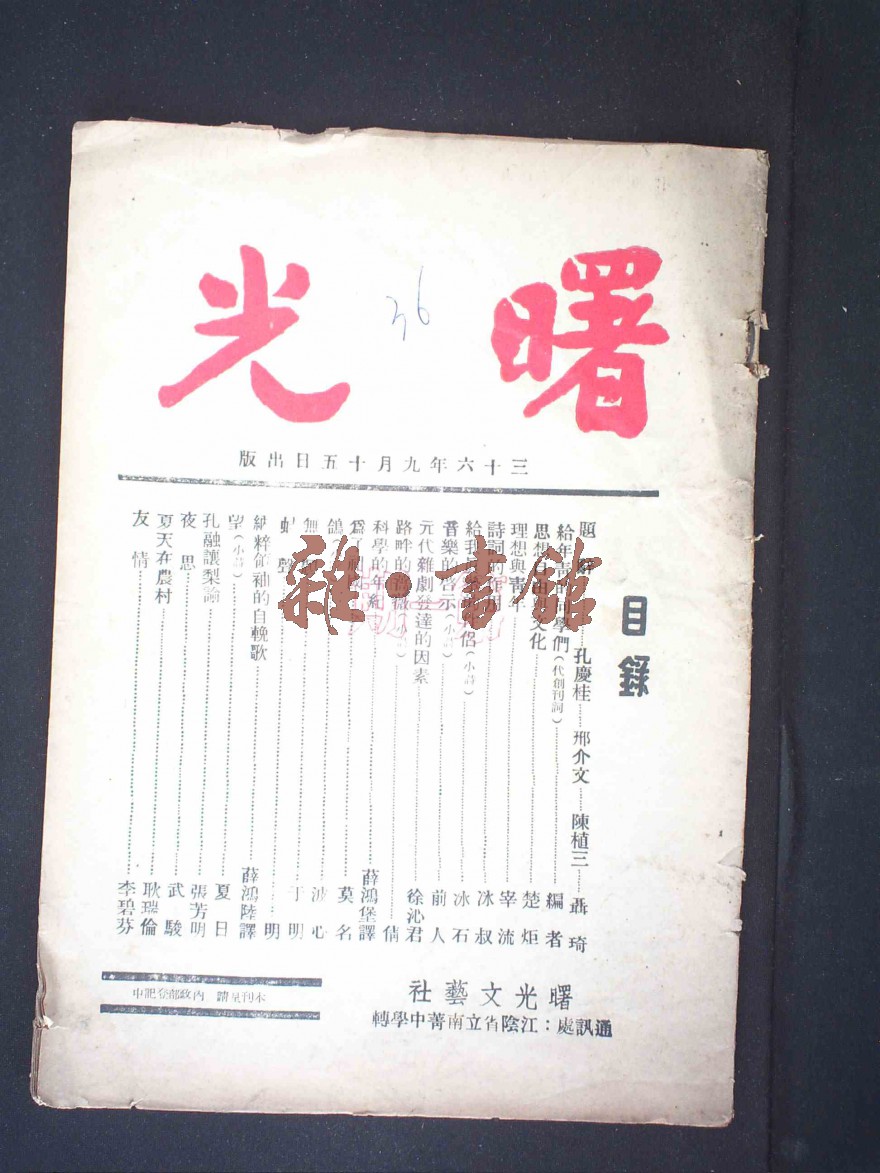 曙光
36
三十六年九月十五日出版
目錄
題 孔慶桂 邢介文 陳植三 聶琦
給年青的同學們(代創刊詞) 編者
思想自由與文化 楚炬
理想與靑年 宰流
詩詞的 冰叔
給我 侶(小詩) 冰石
音樂的啓示(小詩) 前人
元代雜劇發達的因素 徐沁君
路畔的薔薇(小詩) 倩
科學的年 薛鴻堡譯
爲了 莫名
鴿 波心
無 于明
聲 明
納粹領袖的自輓歌 薛鴻陸譯
望(小詩) 夏日
孔融讓梨論 張芳明
夜思 武駿
夏天在農村 耿瑞倫
友情 李碧芬
曙光文藝社
通訊處:江陰省立南菁中學轉
本刊呈請內政部登記中
雜·書館